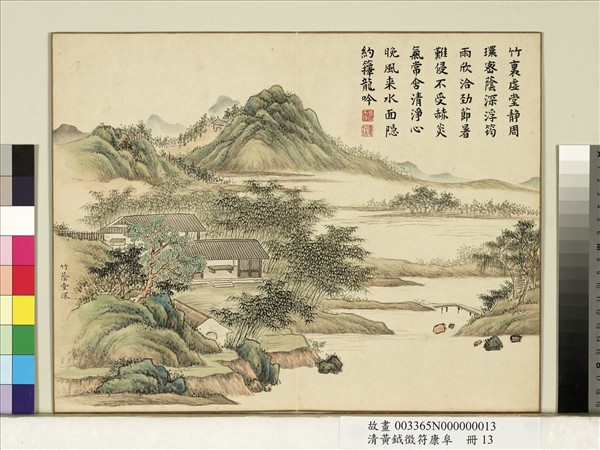 竹裏虛堂靜周
環密蔭深浮筠
雨欣洽勁節暑
難侵不受赫炎
氣常含清淨心
晚風來水面隠
約籜龍吟
竹蔭堂深
故畫 003365N000000013
清黃鉞徵符康阜 冊 13